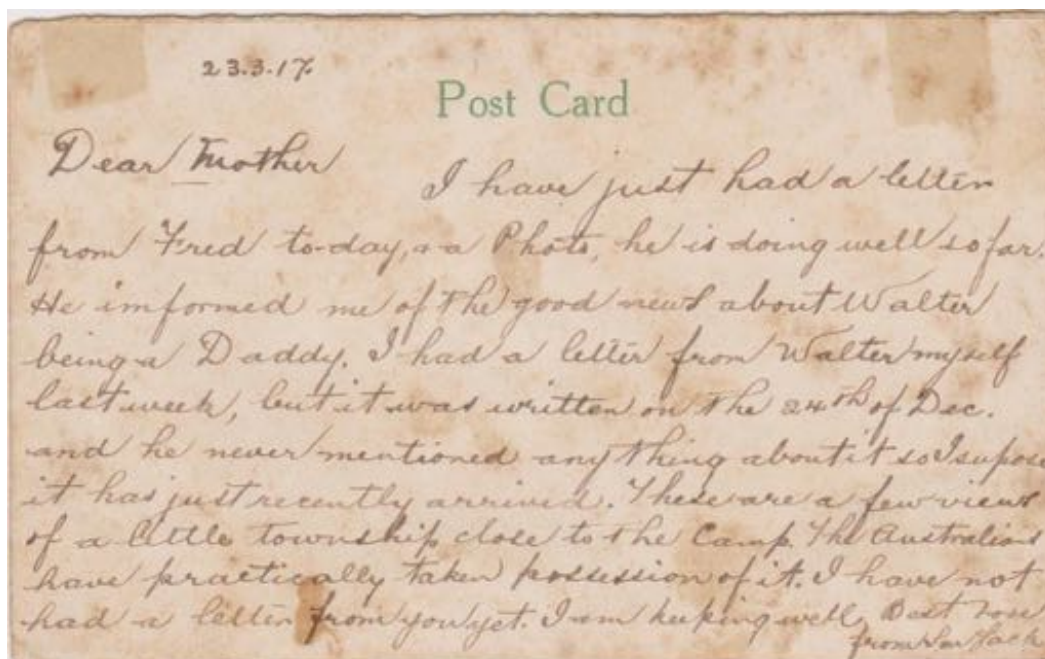 23.3.17.
Post Card
Dear Mother
I have just had a letter
from Fred to-day, & a Photo, he is doing well so far.
He imformed me of the good news about Walter
being a Daddy. I had a letter from Walter myself
last week, but it was written on the 24th of Dec.
and he never mentioned anything about it so I supose
it has just recently arrived. These are a few views
of a little township close to the Camp. The Australians
have practically taken possession of it. I have not
had a letter from you yet. I am keeping well, Best love
from Son Jack